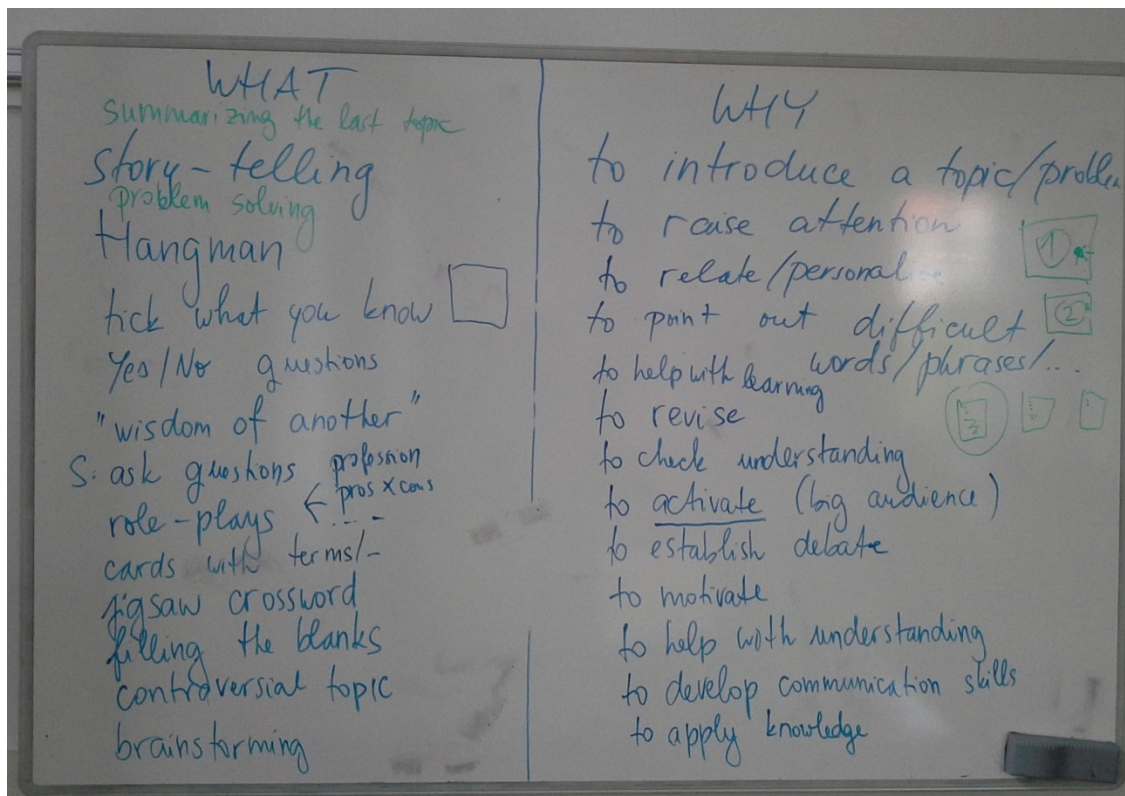 WHAT
summarizing the last topic
story-telling
problem solving
Hangman
tick what you know
Yes/No questions
"wisdom of another"
S: ask questions
profession
pros x cons
role-plays
....-
cards with terms/-
jigsaw crossword
filling the blanks
controversial topic
brainstorming
WHY
to introduce a topic/proble
to raise attention
1
to relate/personal
to point out difficult
2
words/phrases/...
to help with learning
to revise
to check understanding
to activate (big audience)
to establish debate
to motivate
to help with understanding
to develop communication skills
to apply knowledge